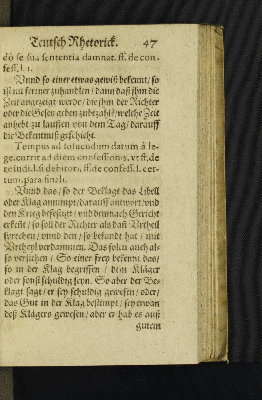 Teutsch Rhetorick. 47
dō se sua sententia damnat. ff. de con-
fess. l. 1.
Vnnd so einer etwas gewiß bekennt / so
ist mit ferner zuhandlen / dann daß jhm die
Zeit angezeigt werde / die jhm der Richter
oder die Gesetz geben zubezahlē / welche Zeit
anhebt zu lauffen von dem Tag / darauff
die Bekentnuß geschicht.
Tempus ad soluendum datum à le-
ge, currit ad diem confessionis, vt ff. de
re iudi. l. si debitori, ff. de confess. l. cer-
tum, para. finali.
Vnnd das / so der Beklagt das Libell
oder Klag annimpt / darauff antwort / vnd
den Krieg befestigt / vnd dennach Gericht
erkent / so soll der Richter als dañ Vrtheil
sprechen / vnnd den / so bekandt hat / mit
Vrtheyl verdammen. Das soltu auch al-
so verstehen / So einer frey bekennt das /
so in der Klag begriffen / dem Kläger
oder sonst schuldig seyn. So aber der Be-
klagt sagt / er sey schuldig gewesen / oder /
das Gut in der Klag bestimpt / sey etwan
deß Klägers gewesen / aber er hab es auß
gutem